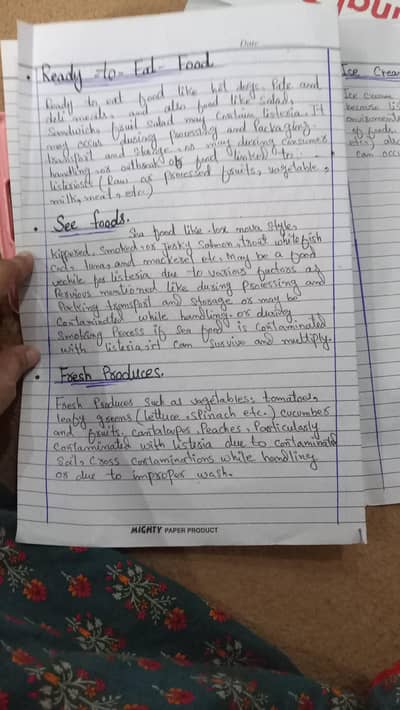 Date
• Ready-to-Eat-Food
Ready to eat food like hot dogs, Pate and
deli meals, and also food like salad,
Sandwichs fruit salad may Contain listeria. It
may occur during processing and Packaging
transport and Storage, or may during consumer
handling or outbreak of food linked to
listeriosis (Raw or processed fruits, vegetable,
milk, meat, etc.)
• See foods.
Sea food like lox nova Style,
kippered, Smoked, or Jerky Salmon, trout, white fish
Cod, tuna, and mackerel etc. may be a food
vechile for listesia due to various factors as
Pervious mentioned like during Processing and
Packing transport and Storage or may be
Contaminated while handling, or during
Smoking Process if Sea food is contaminated
with listesia, it can Survive and multiply.
• Fresh Produces.
Fresh Produces Such as vegetabless, tomatoes,
leafy greens (lettuce, Spinach etc.) cucumber
and fruits, cantalopes, Peaches, Particularly
Contaminated with listesia due to contaminated
Soil, Cross contaminations while handling
or due to improper wash.
MIGHTY PAPER PRODUCT
Ice Cream
Ice cream
because
environment
of foods
etc.) als
can occ